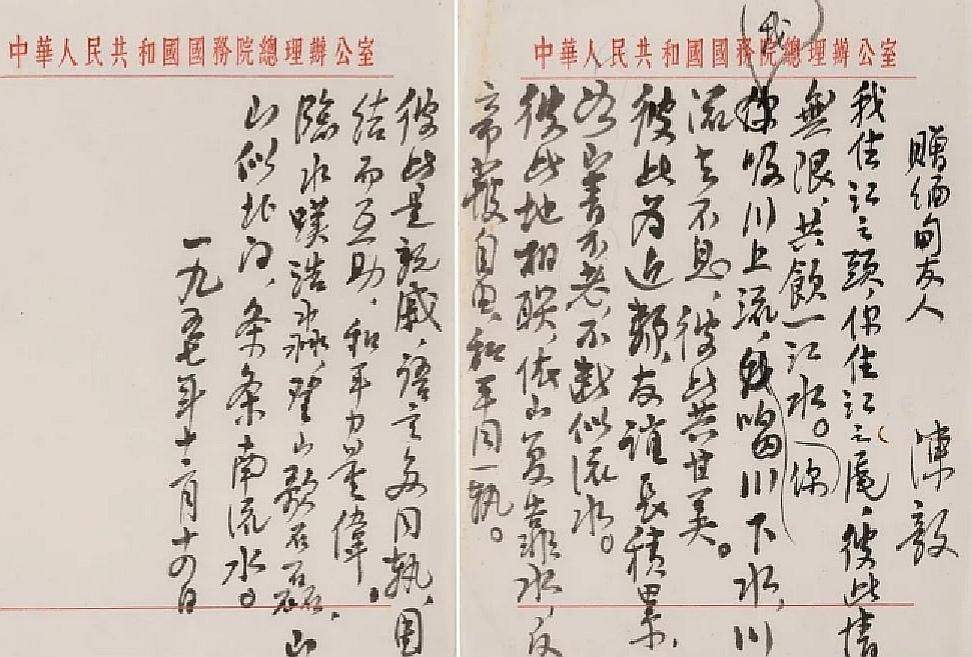 中華人民共和國國務院總理辦公室
贈缅甸友人 陳毅
我住江之頭,你住江之尾,彼此情
無限,共飲一江水。
(我)
你吸川上流,我喝川下水,川
(你)
流去不息,彼此共甘美。
彼此为近鄰,友誼長積累,
山青不老,不斷似流水。
彼此地相联,依山复靠水,反
帝自由,和平同一軌。
中華人民共和國國務院總理辦公室
彼此是親戚,語言多同軌,團
結而互助,和平力量偉。
臨水嘆浩淼,登山歌石磊,山
山似北向,条条南流水。
一九五七年十二月十四日